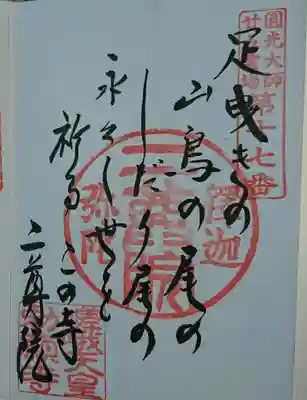 圓光大師
廿五霊場
第十七番
足曳きの
山鳥の尾の
しだり尾の
永々し世を
祈るこの寺
二尊院
釋迦
弥陀
嵯峨天皇